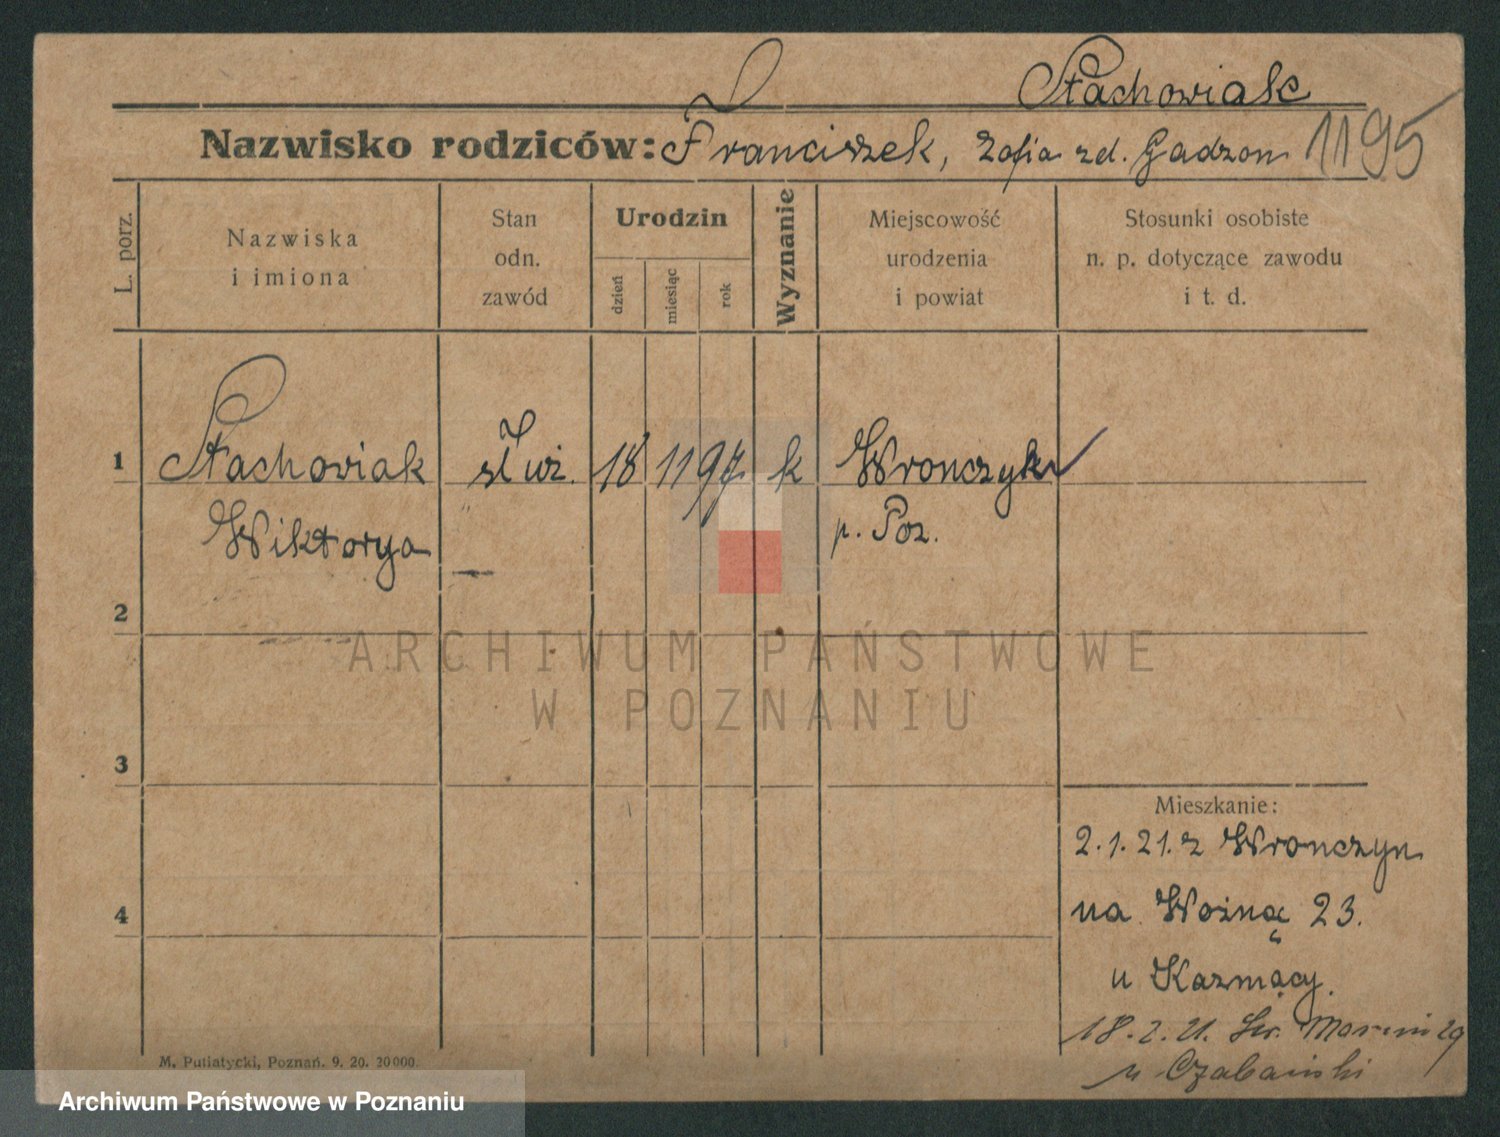 Stachowiak
Nazwisko rodziców: Franciszek, Zofia zd. Gadzon 1195
L. porz.
Nazwiska
i imiona
Stan
odn.
zawód
Urodzin
dzień
miesiąc
rok
Wyznanie
Miejscowość
urodzenia
i powiat
Stosunki osobiste
n. p. dotyczące zawodu
i t. d.
1 Stachowiak służ. 18 11 97 k Wronczyn
Wiktorya p. Poz.
2
ARCHIWUM PAŃSTWOWE
W POZNANIU
3
Mieszkanie:
2.1.21. z Wronczyn
4
na Woźną 23.
u
18.2.21. Św. Marcin 29
u
M. Putiatycki, Poznań. 9. 20. 20000.
Archiwum Państwowe w Poznaniu